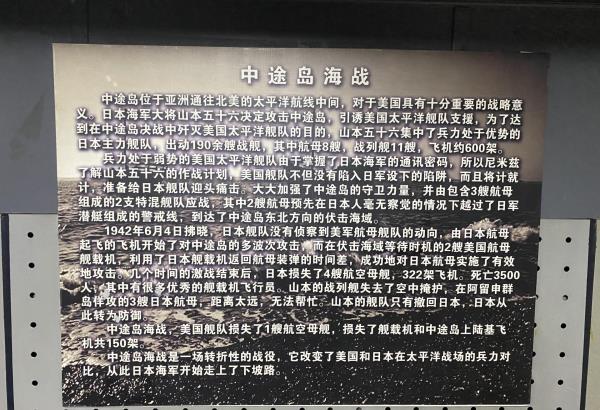 中途岛海战
中途岛位于亚洲通往北美的太平洋航线中间，对于美国具有十分重要的战略意
义。日本海军大将山本五十六决定攻击中途岛，引诱美国太平洋舰队支援，为了达
到在中途岛决战中歼灭美国太平洋舰队的目的，山本五十六集中了兵力处于优势的
日本主力舰队，出动190余艘战舰，其中航母8艘，战列舰11艘，飞机约600架。
兵力处于弱势的美国太平洋舰队由于掌握了日本海军的通讯密码，所以尼米兹
了解山本五十六的作战计划，美国舰队不但没有陷入日军设下的陷阱，而且将计就
计，准备给日本舰队迎头痛击。大大加强了中途岛的守卫力量，并由包含3艘航母
组成的2支特混舰队应战，其中2艘航母预先在日本人毫无察觉的情况下越过了日军
潜艇组成的警戒线，到达了中途岛东北方向的伏击海域。
1942年6月4日拂晓，日本舰队没有侦察到美军航母舰队的动向，由日本航母
起飞的飞机开始了对中途岛的多波次攻击，而在伏击海域等待时机的2艘美国航母
舰载机，利用了日本舰载机返回航母装弹的时间差，成功地对日本航母实施了有效
地攻击。几个时间的激战结束后，日本损失了4艘航空母舰，322架飞机。死亡3500
人，其中有很多优秀的舰载机飞行员。山本的战列舰失去了空中掩护，在阿留申群
岛佯攻的3艘日本航母，距离太远，无法帮忙。山本的舰队只有撤回日本，日本从
此转为防御。
中途岛海战，美国舰队损失了1艘航空母舰，损失了舰载机和中途岛上陆基飞
机共150架。
中途岛海战是一场转折性的战役，它改变了美国和日本在太平洋战场的兵力对
比，从此日本海军开始走上了下坡路。